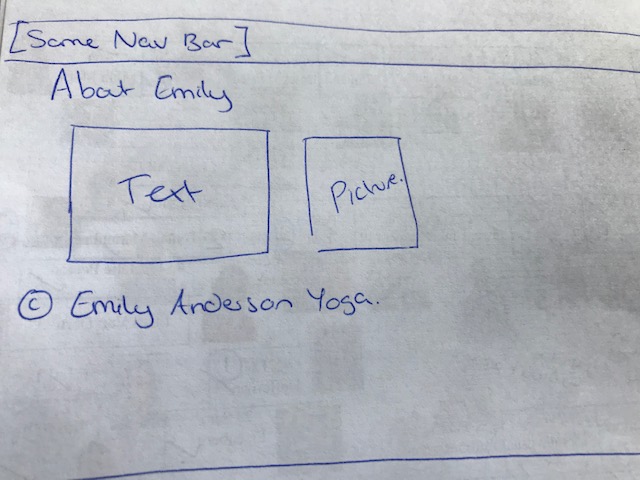 [Same Nav Bar]
About Emily
Text
Picture.
© Emily Anderson Yoga.